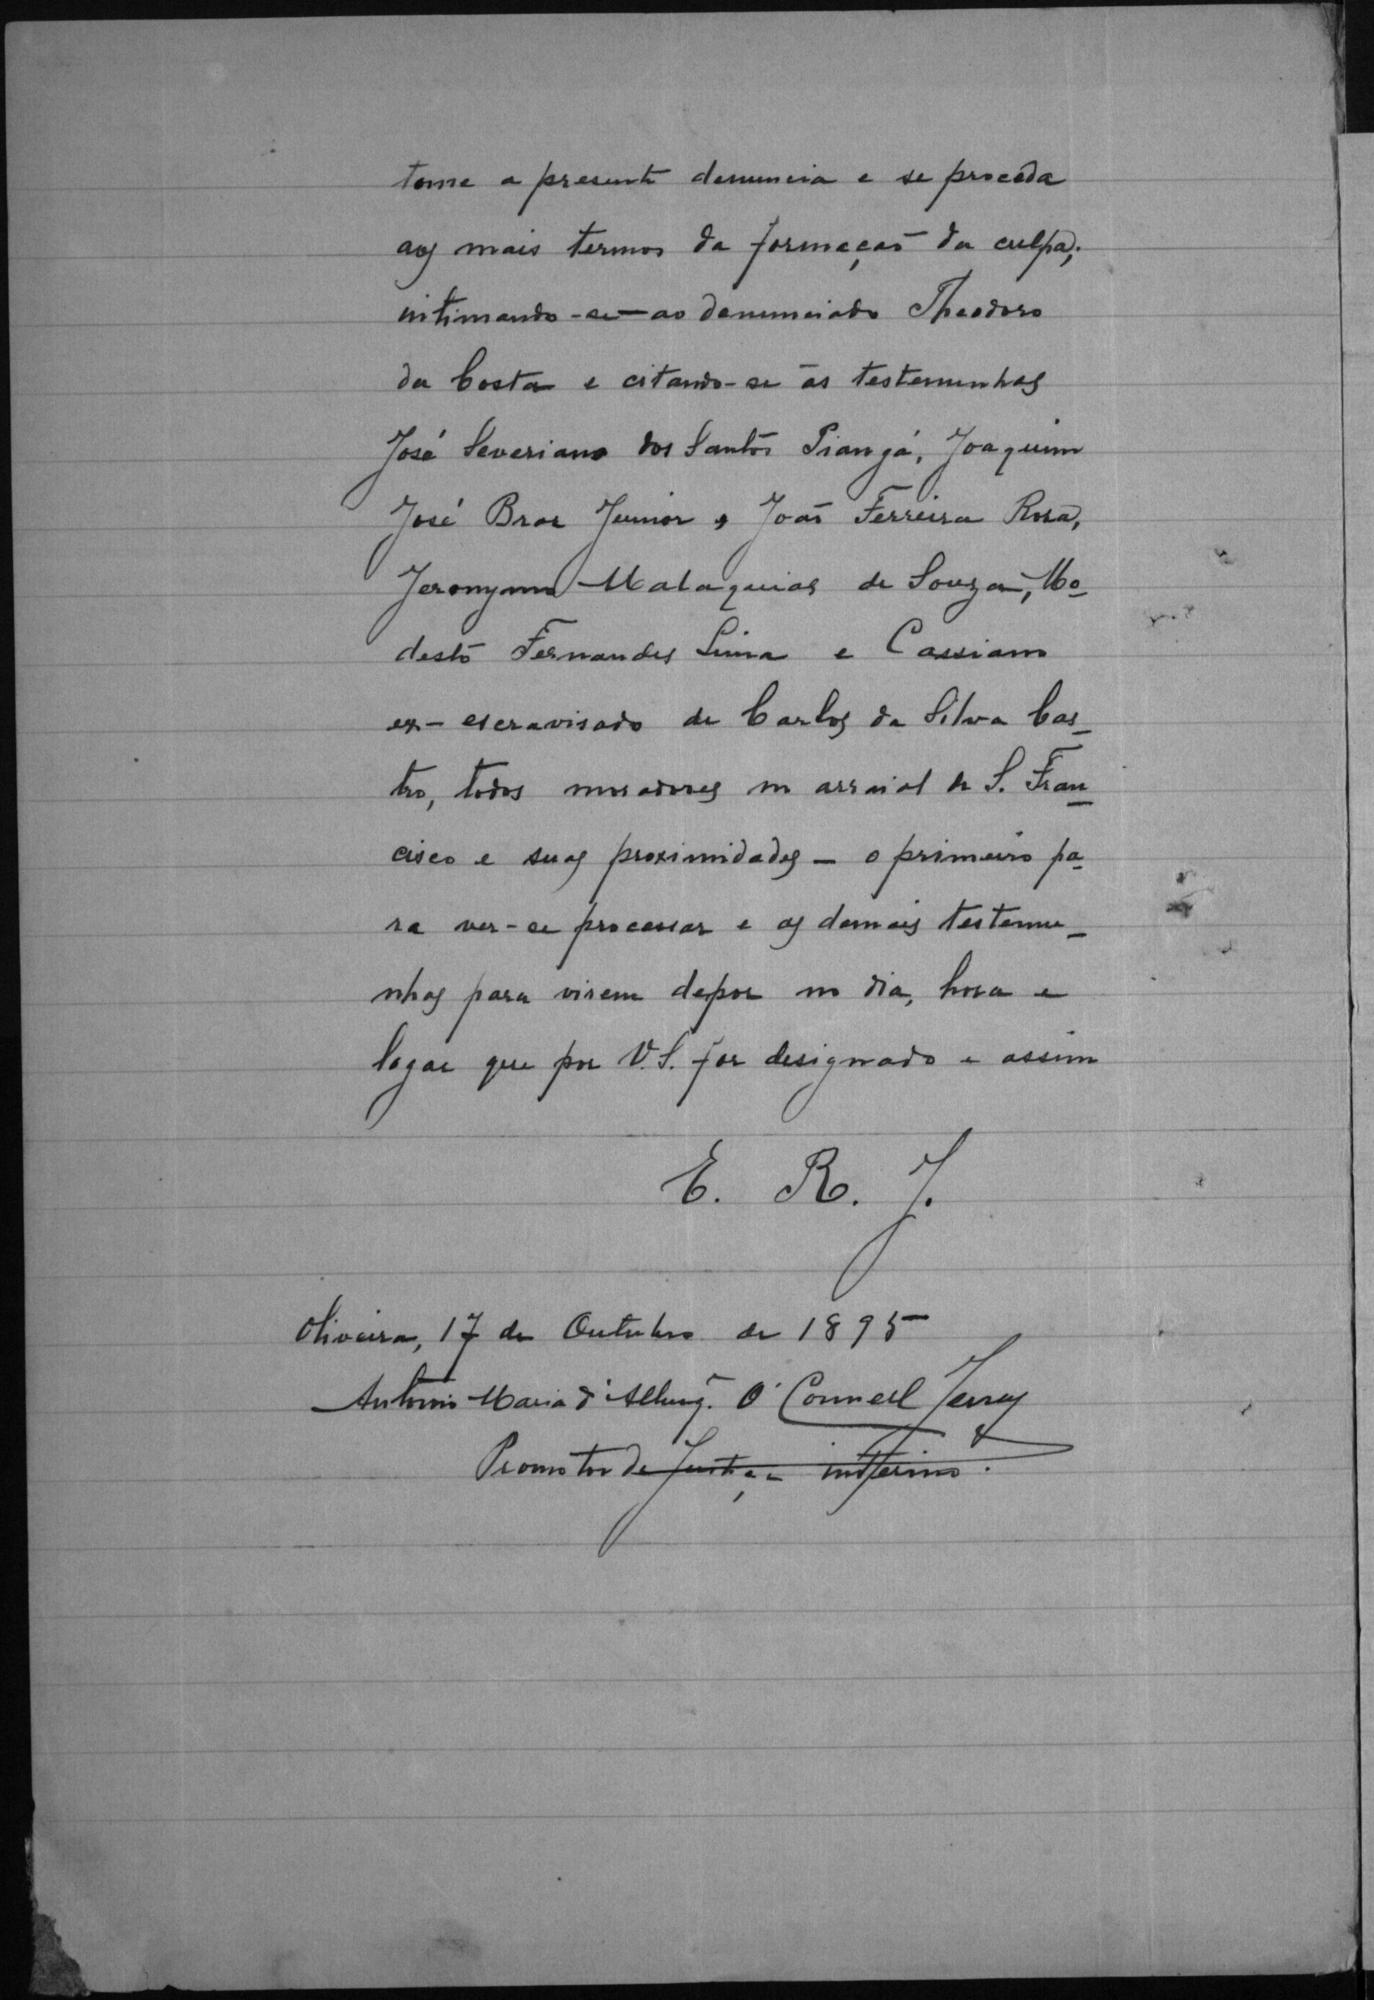 tome a presente denuncia e se proceda
aos mais termos da formação da culpa;
intimando-se ao denunciado Theodoro
da Costa e citando-se ás testemunhas
José Severiano dos Santos Piangá, Joaquim
José Braz Junior, João Ferreira Rosa,
Jeronymo Malaquias de Souza, Mo-
desto Fernandes Lima e Cassiano
ex-escravisado de Carlos da Silva Cas-
tro, todos moradores no arraial de S. Fran-
cisco e suas proximidades — o primeiro pa-
ra ver-se processar e as demais testemu-
nhas para virem depor no dia, hora e
logar que por V. S. for designado e assim
E. R. J.
Oliveira, 17 de Outubro de 1895
Antonio Maria d' O' Connell Jersey
Promotor de Justiça interino.